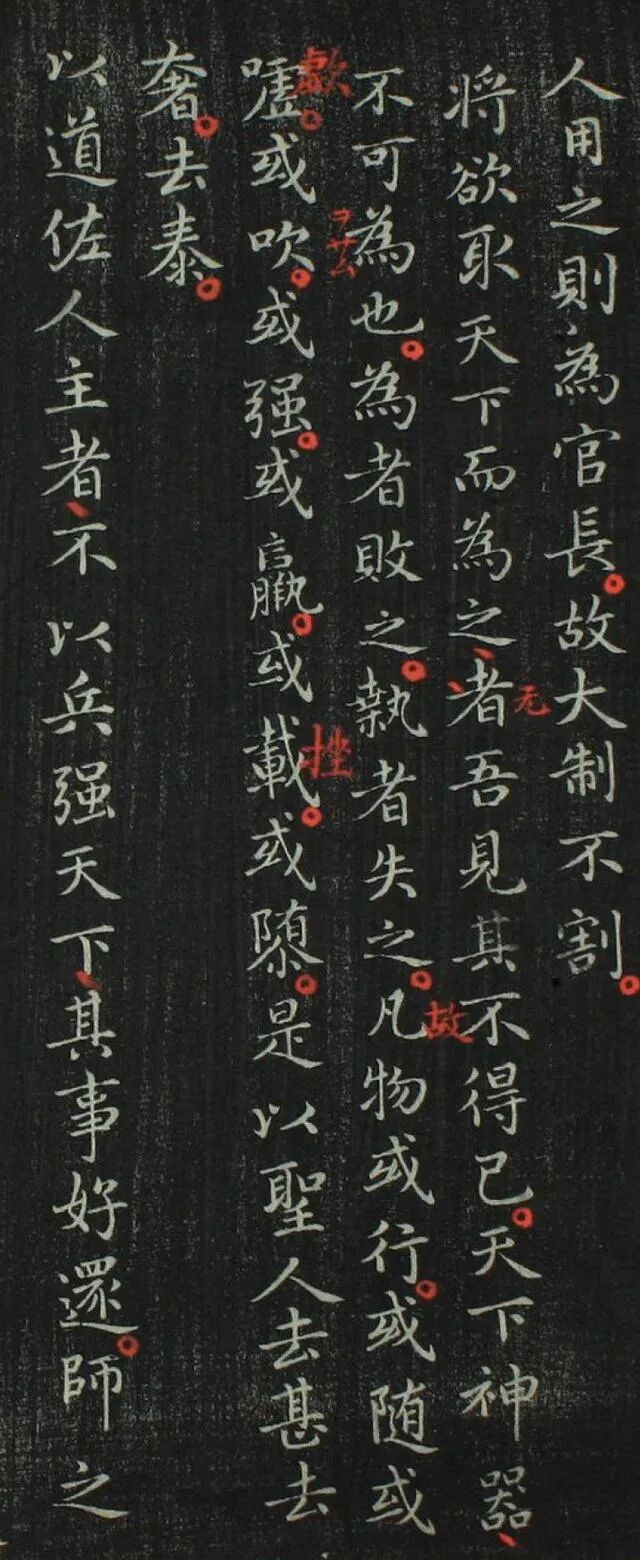 人用之則、為官長。故大制不割。
将欲取天下而為之、者、吾見其不得已。天下神器、
无
不可為也。為者敗之。執者失之。凡物或行。或随或
故
ヲサム
嘘。或吹。或强。或羸。或載。或隳。是以聖人去甚去
歔
挫
奢。去泰。
以道佐人主者、不以兵强天下、其事好還。師之